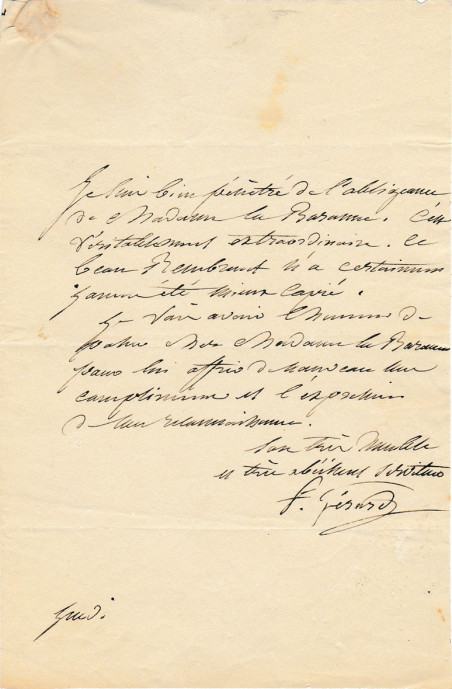 Je suis bien pénétré de l'obligeance
de Madame la Baronne. C'est
véritablement extraordinaire. Ce
beau Rembrant n'a certainement
jamais été mieux copié.
Je vais avoir l'honneur de
passer chez Madame la Baronne
pour lui offrir de nouveau mes
complimens et l'expression
de ma reconnaissance.
Son très humble
et très obéissant serviteur
F. Gérard